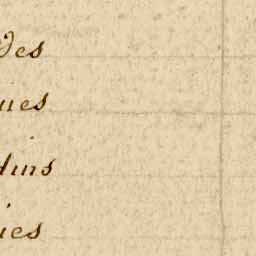 des
ues
dins
ies